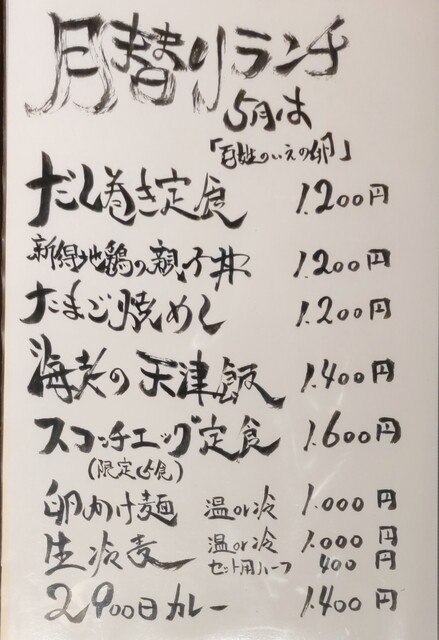 月替りランチ
5月は
「百姓のいえの卵」
だし巻き定食 1.200円
新得地鶏の親子丼 1.200円
たまご焼めし 1.200円
海老の天津飯 1.400円
スコッチエッグ定食 1.600円
(限定15食)
卵かけ麺 温or冷 1.000円
生冷麦 温or冷 1.000円
セット用ハーフ 400円
2900日カレー 1.400円